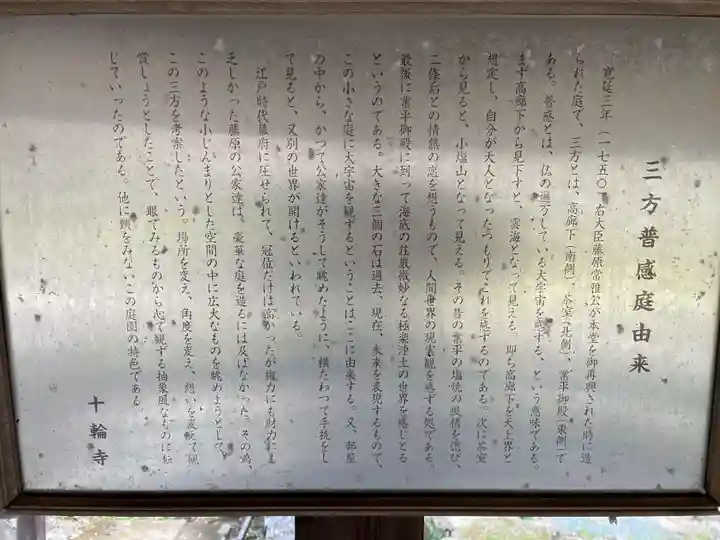 三方普感庭由来
寛延三年(一七五〇)右大臣藤原常雅公が本堂を御再興された時に造
られた庭で、三方とは、高廊下(南側)、茶室(北側)、業平御殿(東側)で
ある。普感とは、仏の遍万している大宇宙を感する、という意味である。
まず高廊下から見下すと、雲海となって見える、即ち高廊下を天上界と
想定し、自分が天人となったつもりでこれを感ずるのである。次に茶室
から見ると、小塩山となって見える。その昔の業平の塩焼の風情を偲び、
二條后との情熱の恋を想うもので、人間世界の現実観を感する処である。
最後に業平御殿に到って海底の荘厳微妙なる極楽浄土の世界を感じとる
というのである。大きな三個の石は過去、現在、未来を表現するもので、
この小さな庭に大宇宙を観するということはここに由来する。又、部屋
の中から、かつて公家達がそうして眺めたように、横たわって手枕をし
て見ると、又別の世界が開けるといわれている。
江戸時代幕府に圧せられて、冠位だけは高かったが権力にも財力にも
乏しかった藤原の公家達は、豪華な庭を造るには及ばなかった。その為、
このような小じんまりとした空間の中に広大なものを眺めようとして、
この三方を考案したという。場所を変え、角度を変え、想いを変えて観
賞しようとしたことで、眼でみるものから心で観する抽象風なものに転
じていったのである。他に類をみないこの庭園の特色である。
十輪寺